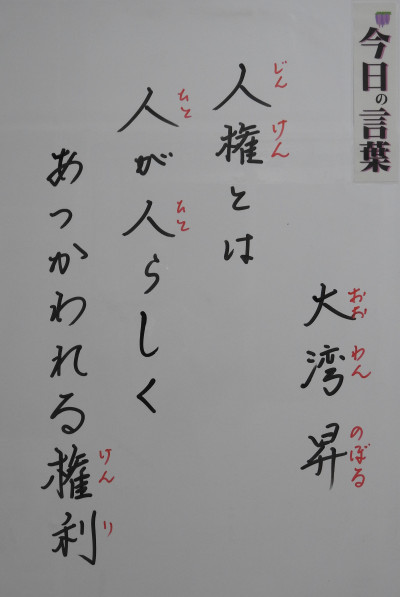 今日の言葉
おお わん のぼる
大湾昇
じん けん
人権とは
ひと ひと
人が人らしく
けん り
あつかわれる権利